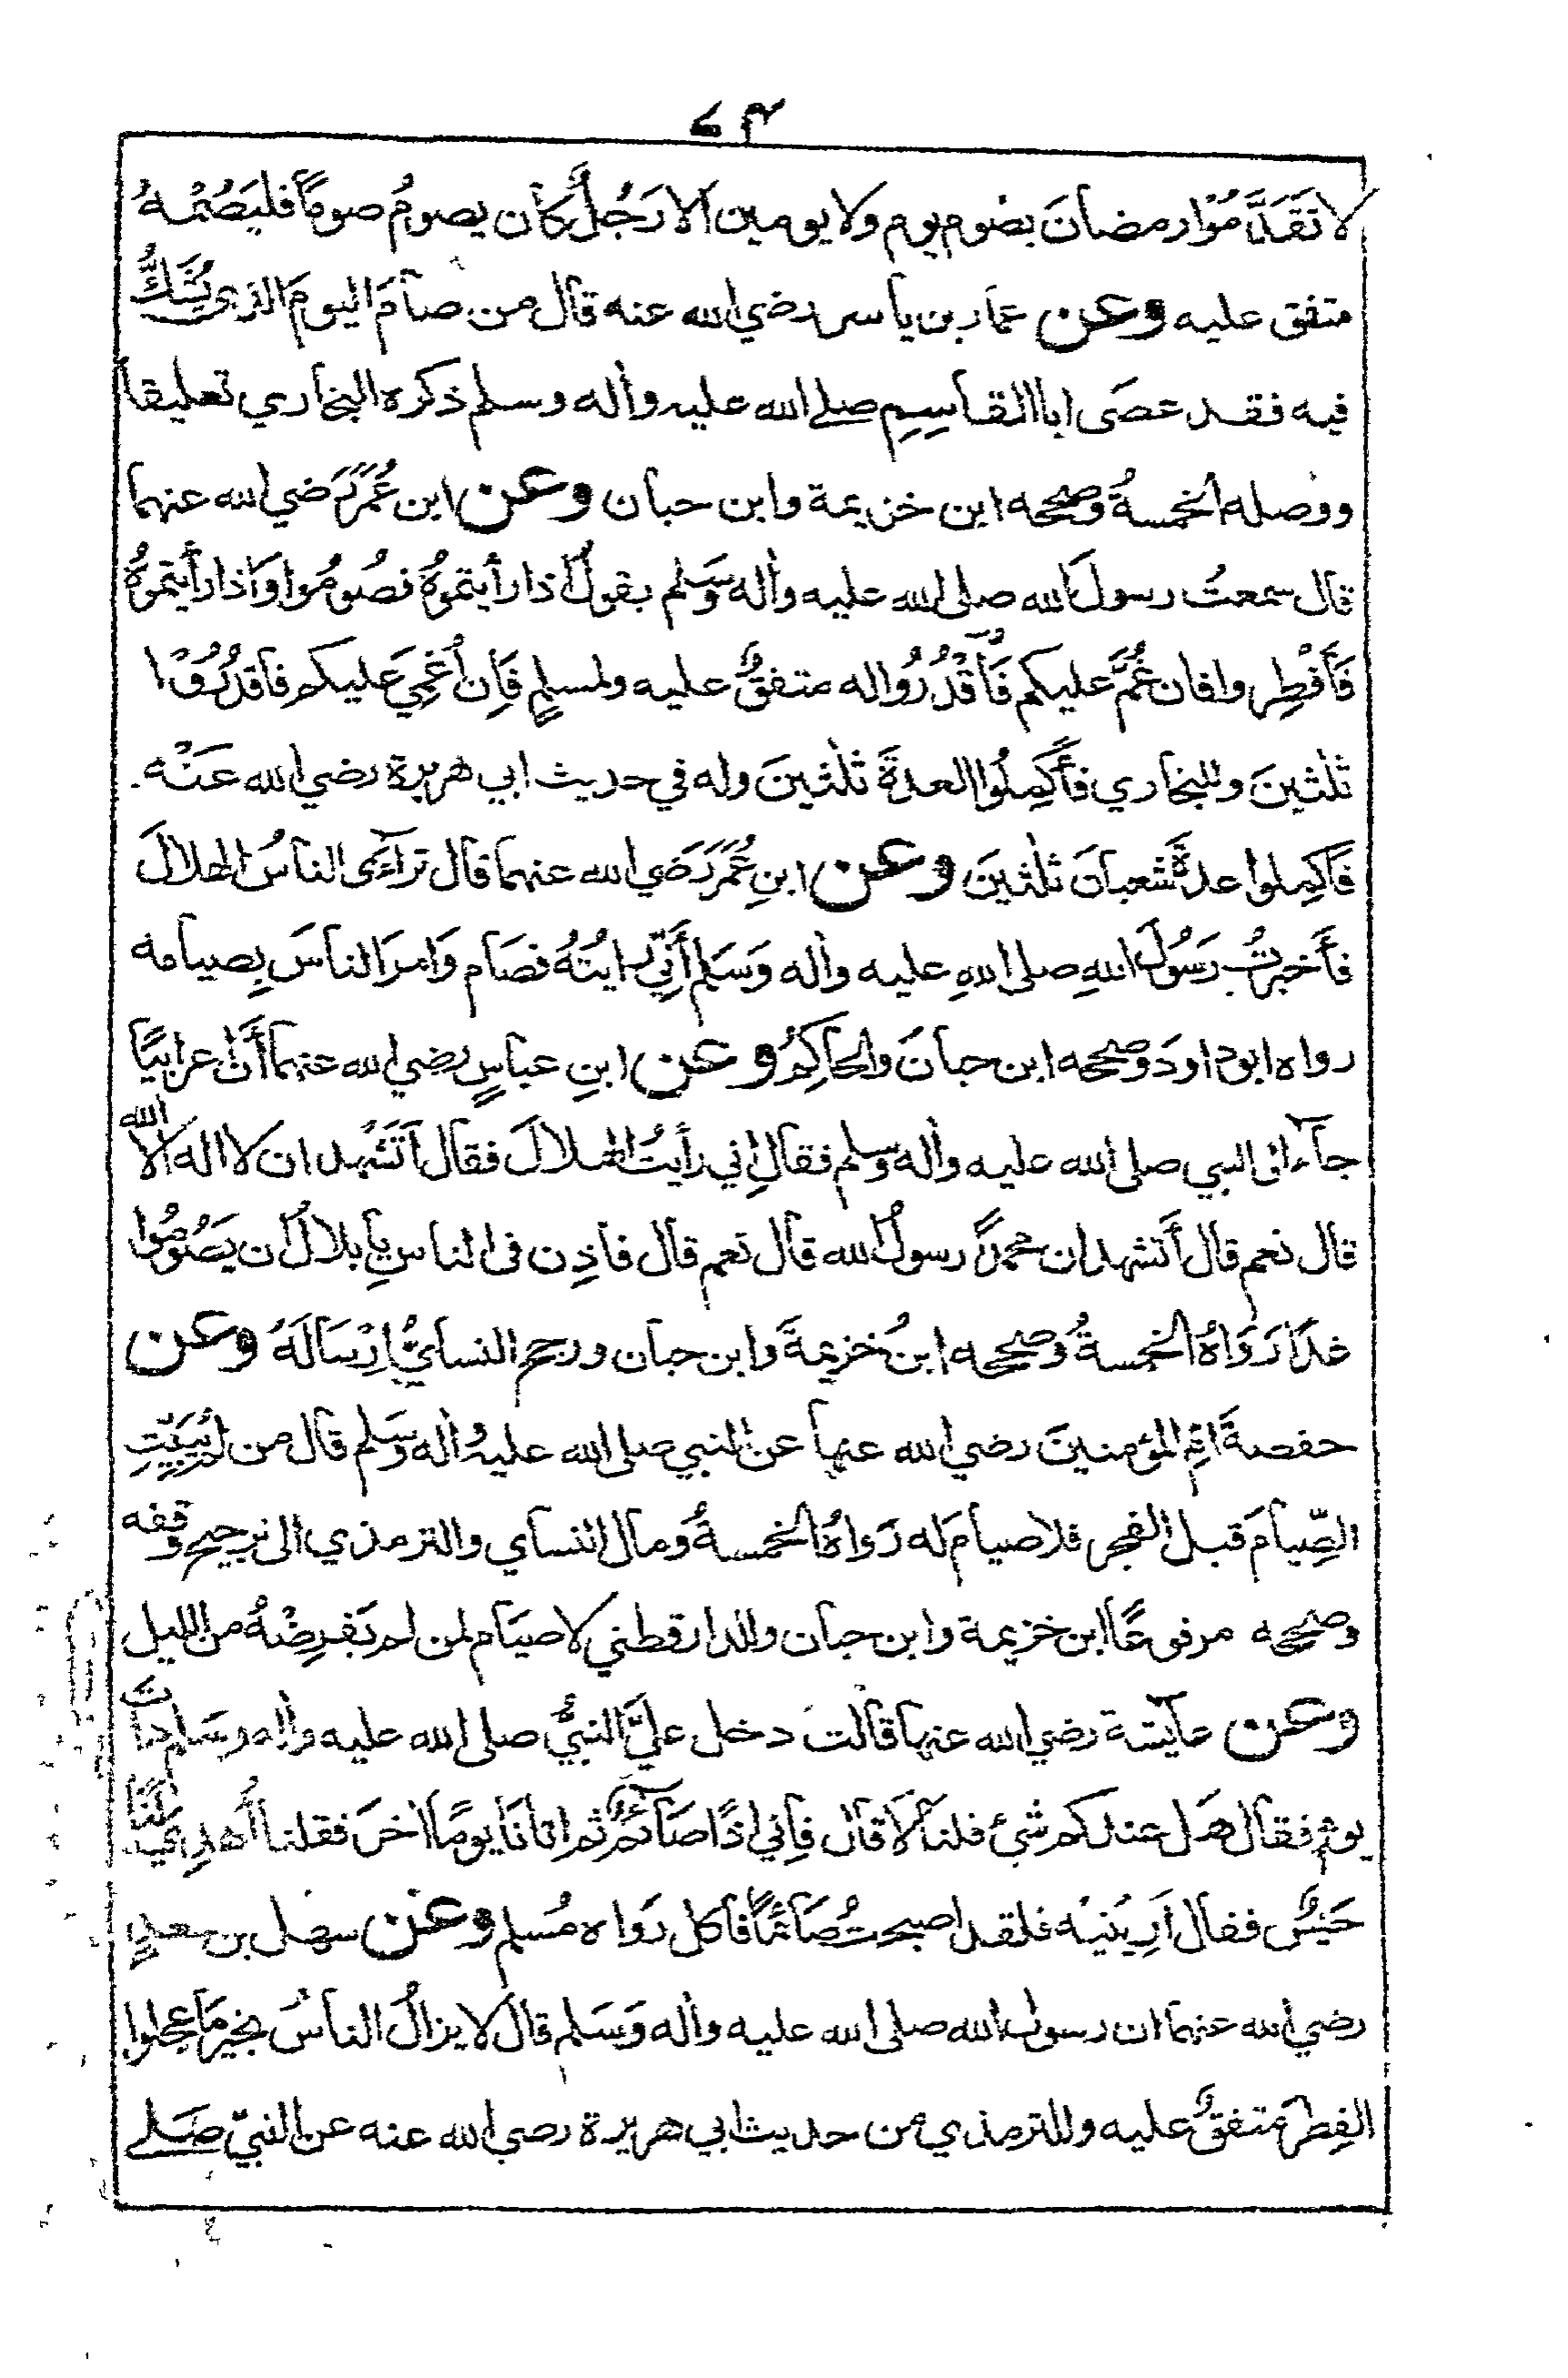 لا تَقَدَّمُوْا رمضانَ بصومِ يومٍ ولا يومين الا رَجُلٌ كان يصومُ صومًا فليَصُمْهُ
متفق عليه وعن عمار بن ياسر رضي الله عنه قال من صامَ اليومَ الذى يُشَكُّ
فيه فقد عصَى ابا القاسِمِ صلے الله عليه واٰله وسلم ذكره البخاري تعليقا
ووصله الخمسةُ وصححه ابن خزيمة وابن حبان وعن ابن عُمَرَ رَضي الله عنهما
قال سمعتُ رسولَ الله صلى الله عليه واٰله وَسَلم يقولُ اذا رأيتموهُ فصُومُوا وَاذا رأيتموهُ
فَأَفْطِروا فان غُمَّ عليكم فَاقْدُرُوا له متفقٌ عليه ولمسلمٍ فَاِن أُغْمِيَ عَليكم فاقدُرُوْا
ثلٰثينَ وللبخاري فأَكمِلُوا العدةَ ثلٰثينَ وله في حديث ابي هريرة رضي الله عَنْه
فَاكمِلوا عدةَ شَعبانَ ثلٰثينَ وعن ابنِ عُمَرَ رَضَي الله عنهما قال تراءَى الناسُ الهلالَ
فأَخبرتُ رَسُولَ اللهِ صلى اللهِ عليه واٰله وَسَلم أَنِّي رايتُهُ فصَام وَامرَ الناسَ بِصيامه
رواه ابو داودَ وصححه ابن حبانَ والحاكِمُ وعن ابنِ عباسٍ رضي الله عنهما أَنَّ اعرابيًا
جآء الى النبي صلى الله عليه واٰله وسلم فقال اِني رأيتُ الهلالَ فقال أَتَشهد ان لا اله الا الله
قال نعم قال أَتشهد ان محمدًا رسولُ الله قال نعم قال فاذِن فى الناسِ يا بلالُ ان يَصُومُوا
غدًا رَوَاهُ الخمسةُ وصححه ابنُ خزيمةَ وابن حبان ورجح النسائيُّ اِرْسَالَهُ وعن
حفصةَ امِّ المؤمنينَ رضي الله عنها عن النبي صلى الله عليه واٰله وَسَلم قال من لم يُبَيِّتِ
الصِّيامَ قبل الفجر فلا صيامَ له رَوَاهُ الخمسةُ ومال النسأي والترمذي الى ترجيح وقفه
وصححه مرفوعًا ابن خزيمة وابن حبان وللدارقطني لا صيَام لمن لم يَفرِضْهُ من الليل
وعن عايشة رضي الله عنها قالت دخل عليَّ النبيُّ صلى الله عليه واٰله وسَلم ذاتَ
يوم فقال هَل عندكم شئ قلنا لا قال فاِني اذًا صَآئمٌ ثم اتانَا يومًا اٰخرَ فقلنا أُهدِيَ لَنَا
حَيْسٌ فقال أَرِينيْه فلقد اصبحتُ صَآئمًا فأكل رَواه مُسلم وعن سهل بن سعدٍ
رضي الله عنهما ان رسولَ الله صلى الله عليه واٰله وَسَلم قالَ لا يزالُ الناسُ بخيرٍ مَا عجلوا
الفِطرَ متفقٌ عليه وللترمذي من حديث ابي هريرة رضي الله عنه عن النبيّ صَلے